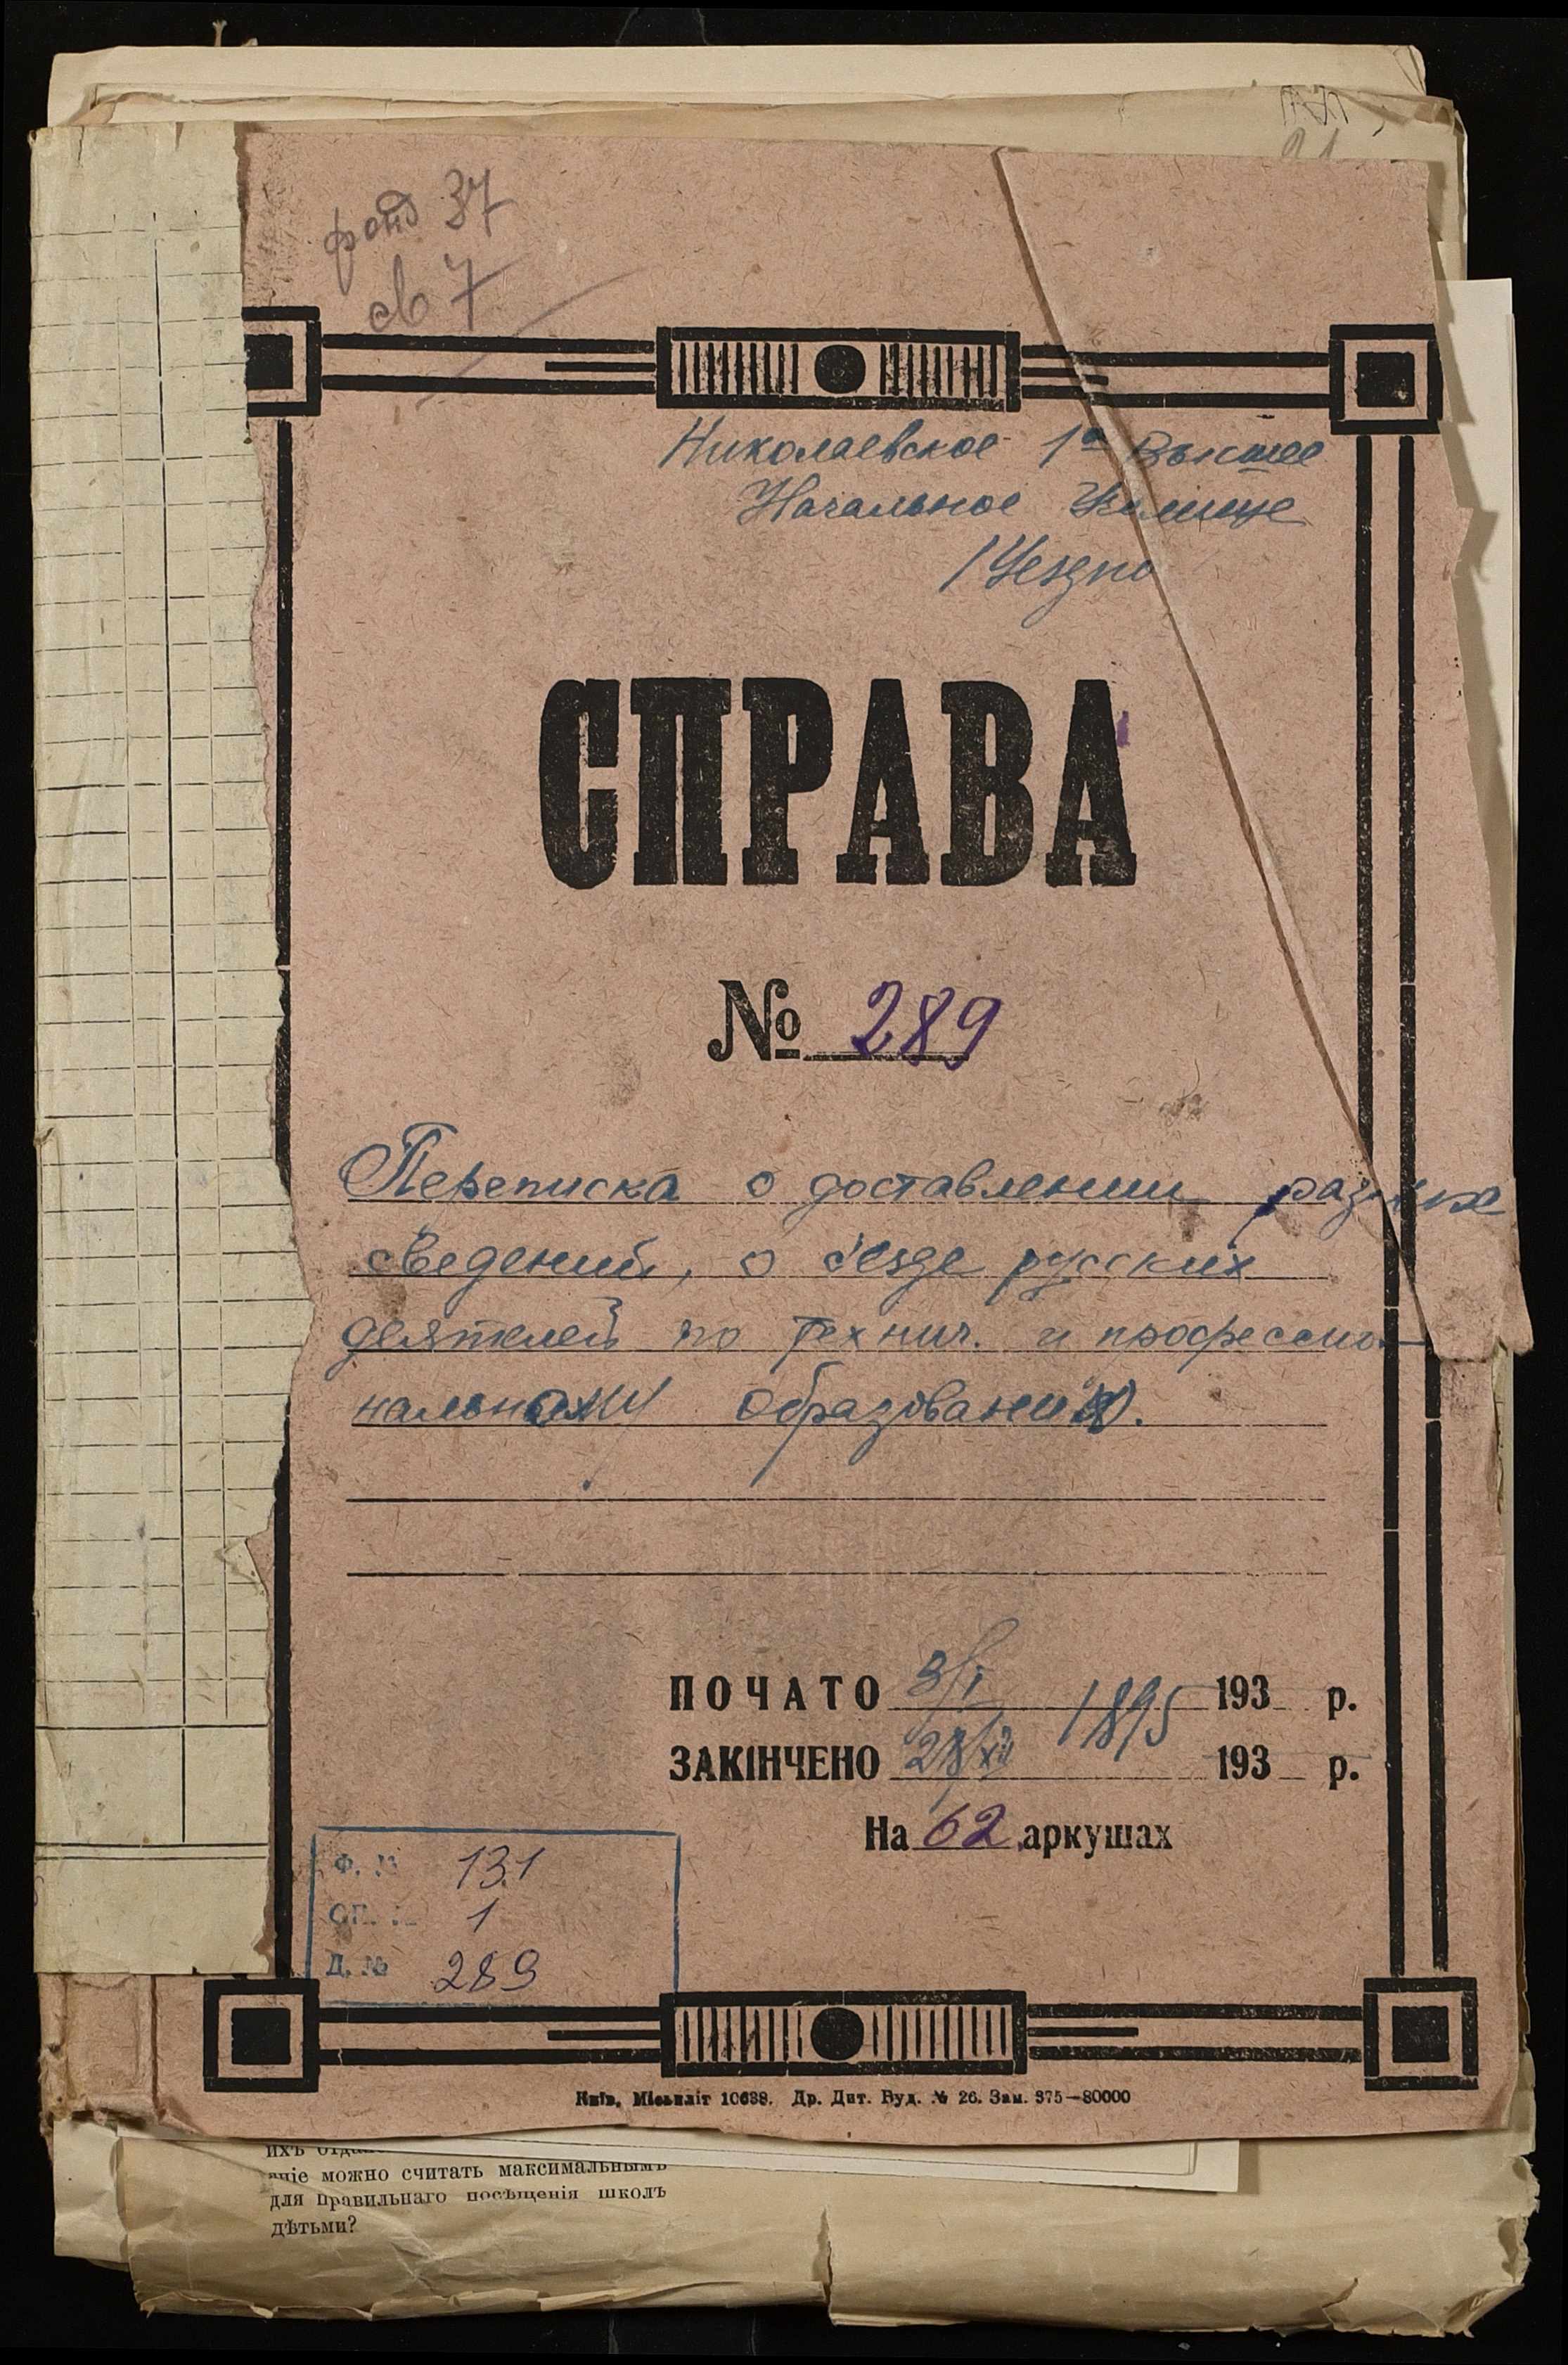 фонд 37
св 7
Николаевское 1ое Высшее
Начальное Училище
СПРАВА
№ 289
Переписка о доставлении разных
сведений, о с'езде русских
деятелей по технич. и профессио-
нальному образованию.
ПОЧАТО 3/I 1895 193 р.
ЗАКІНЧЕНО 28/XII 193 р.
На 62 аркушах
Ф. № 131
ОП. № 1
Д. № 289
Київ, Міськліт 10638. Др. Дит. Буд. № 26. Зам. 375—80000
можно считать максимальнымъ
для правильнаго посѣщенія школъ
дѣтьми?